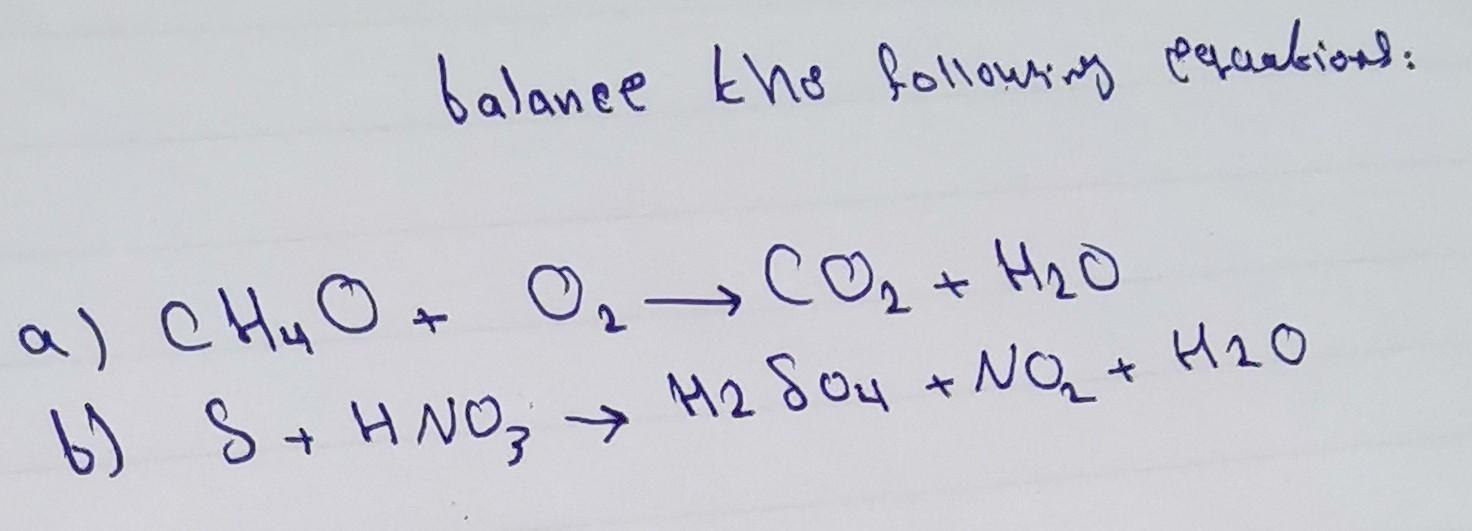 balance the following equations:
a) CH₄O + O₂ → CO₂ + H₂O
b) S + HNO₃ → H2SO4 + NO₂ + H2O